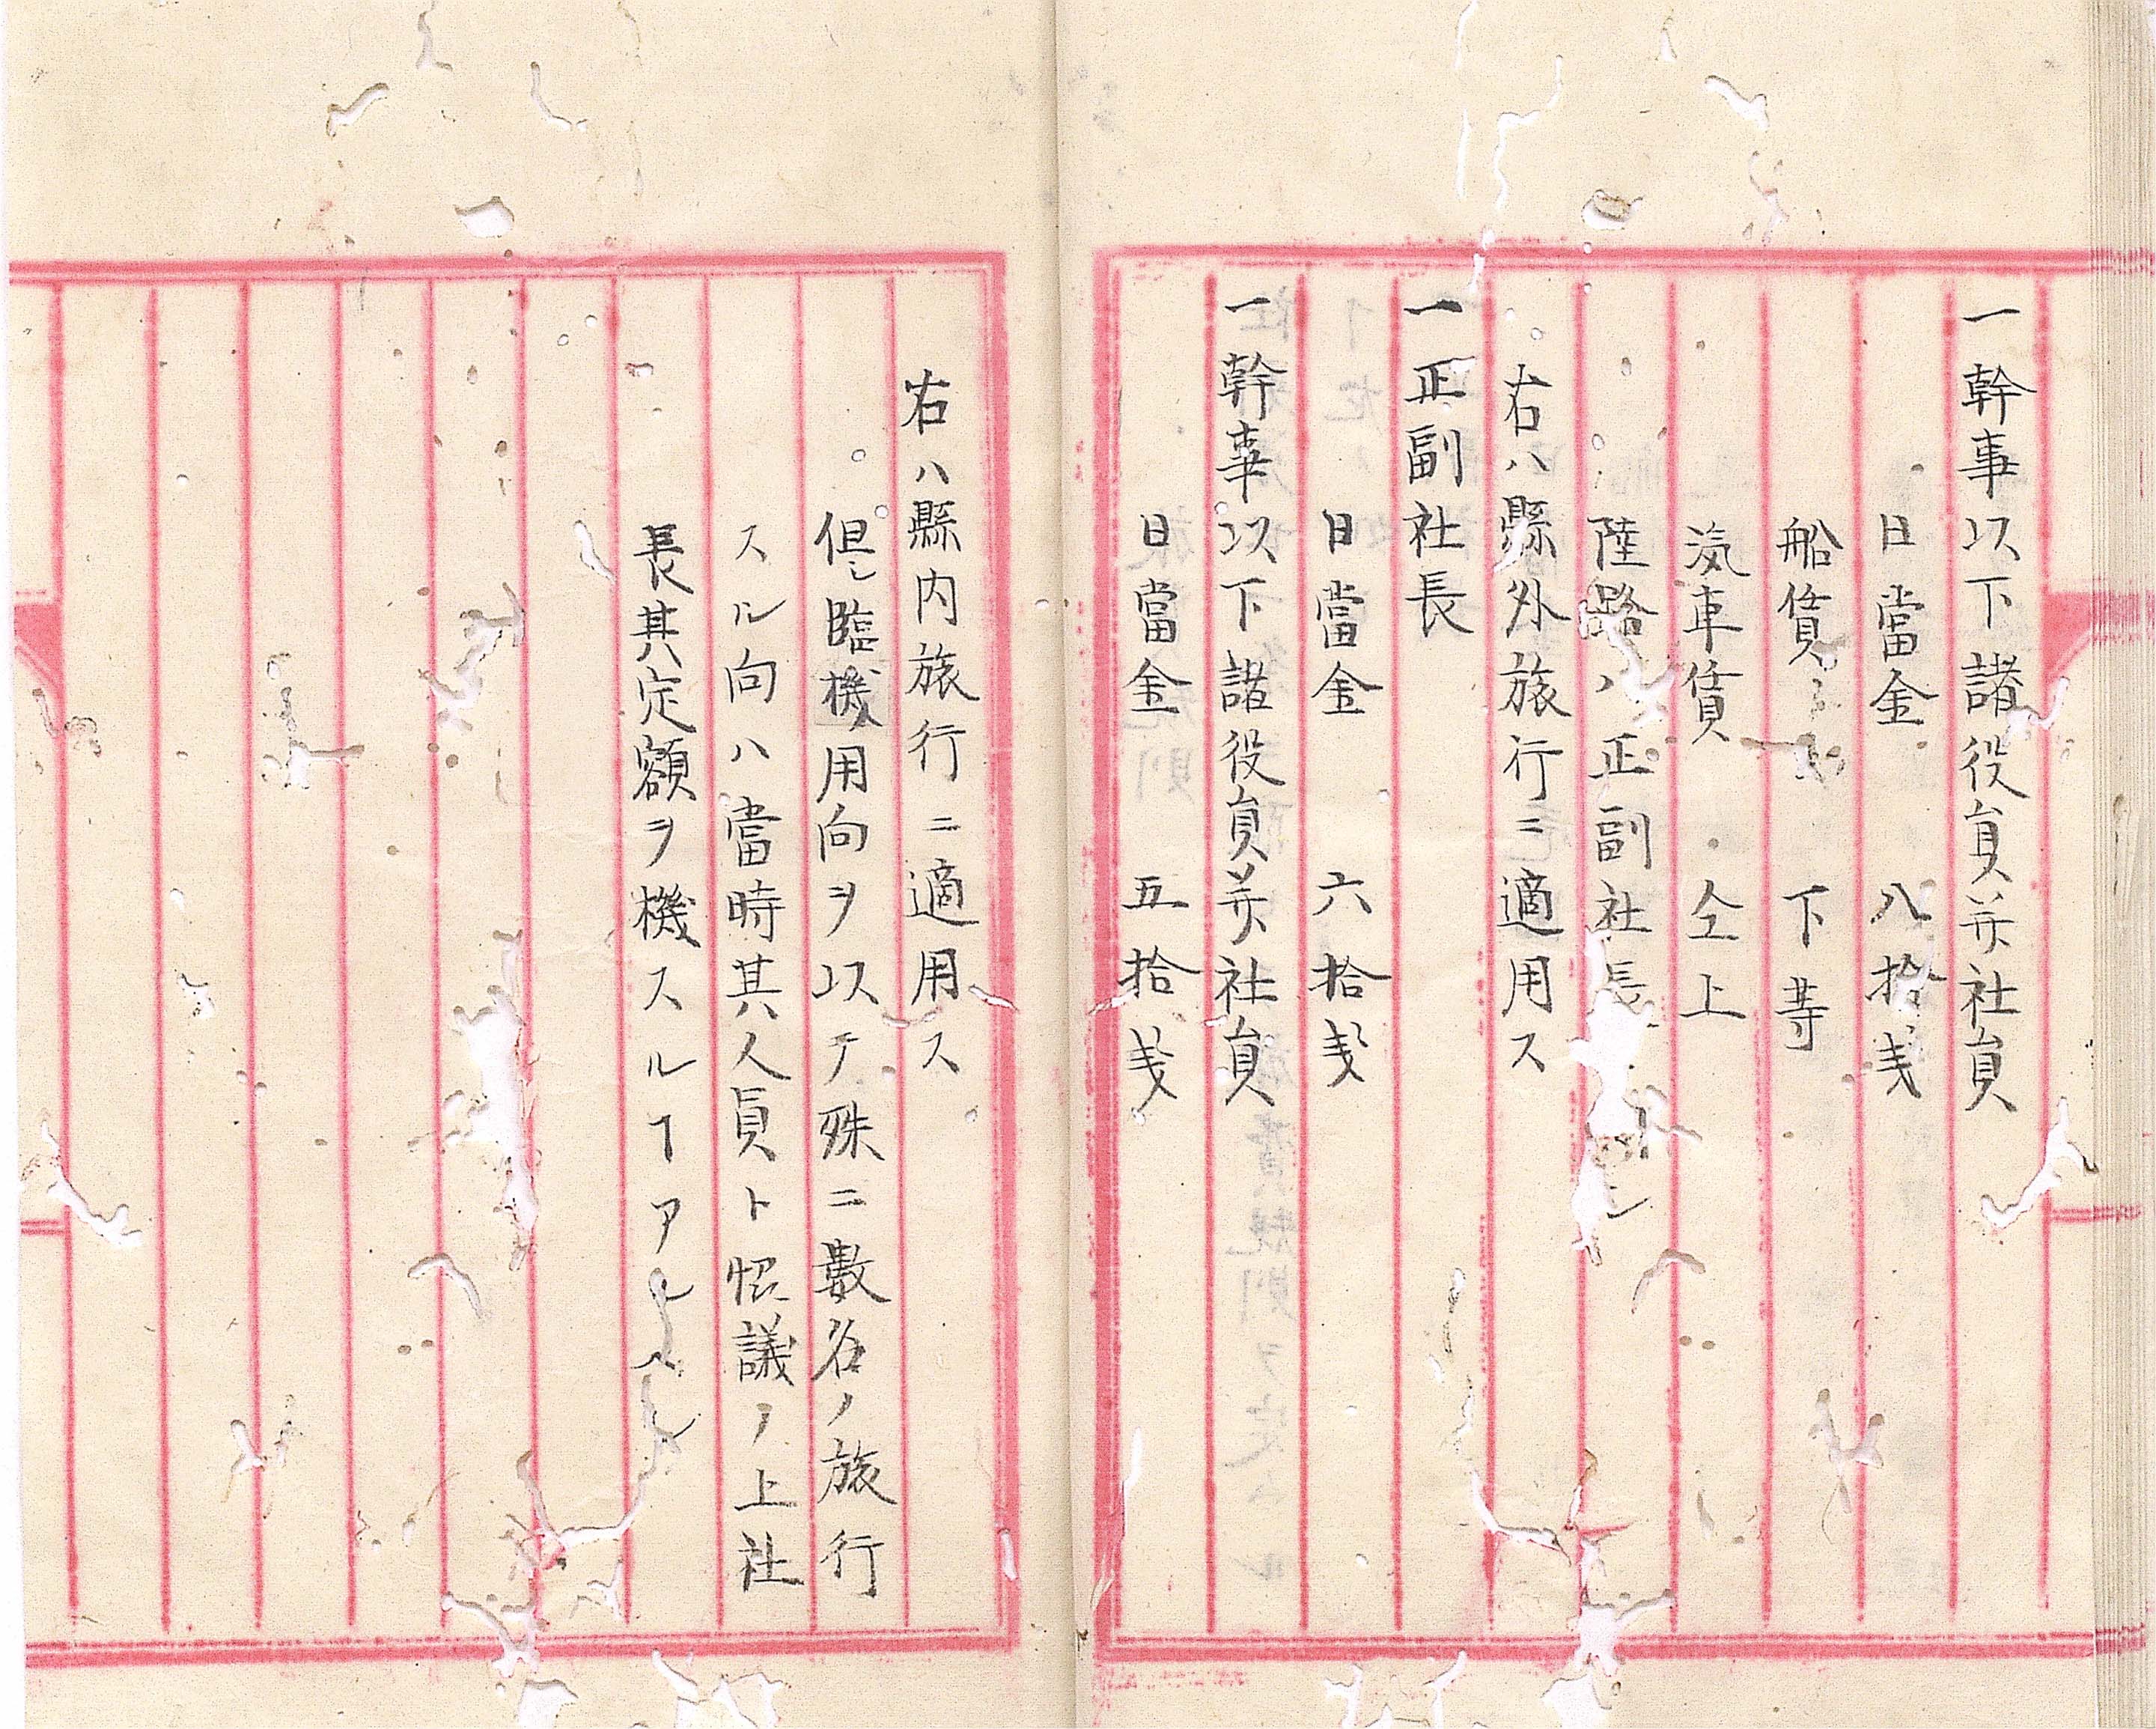 一幹事以下諸役員并社員
日當金　八拾戋
船賃　下等
汽車賃　仝上
陸路ハ正副社長
右ハ縣外旅行ニ適用ス
一正副社長
日當金　六拾戋
一幹事以下諸役員并社員
日當金　五拾戋
右ハ縣内旅行ニ適用ス
但シ臨機用向ヲ以テ殊ニ數名ノ旅行
スル向ハ當時其人員ト協議ノ上社
長其定額ヲ機スルヿアルヘシ